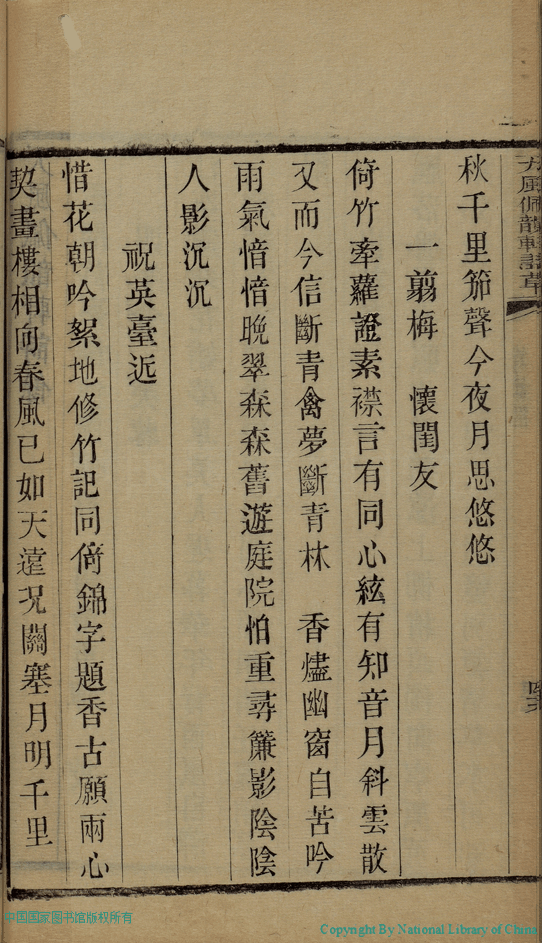 秋千里笳聲今夜月思悠悠
一翦梅　懷閨友
倚竹牽蘿證素襟言有同心絃有知音月斜雲散
又而今信斷青禽夢斷青林　香燼幽窗自苦吟
雨氣愔愔晚翠森森舊遊庭院怕重尋簾影陰陰
人影沉沉
祝英臺近
惜花朝吟絮地修竹記同倚錦字題香古願兩心
契畫樓相向春風已如天遠況關塞月明千里
中国国家图书馆版权所有
Copyright By National Library of China